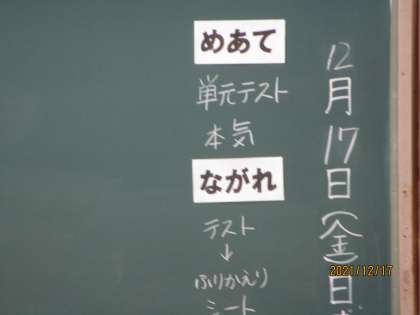 12月17日(金)日
めあて
単元テスト
本気
ながれ
テスト
↓
ふりかえり
シート
2021/12/17